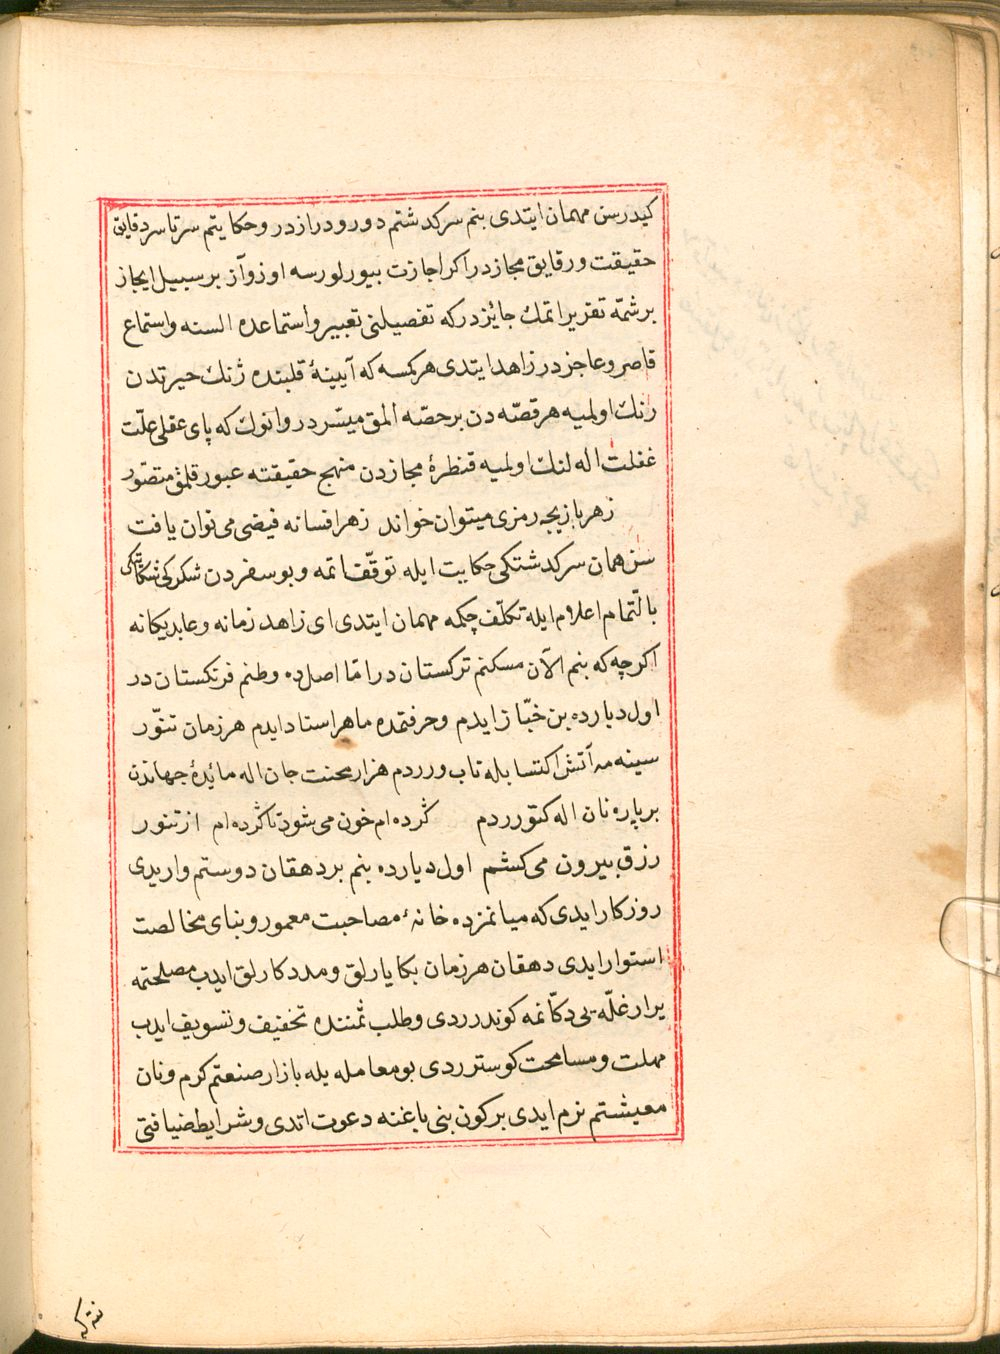 كيدرسن مهمان ايتدى بنم سركدشتم دور و دراز در و حكايتم سرتاسر دقايق
حقيقت و رقايق مجازدر اكر اجازت بيورلورسه اوزوآز بر سبيل ايجاز
بر شمّه تقرير اتمك جائزدركه تفصيلنى تعبير و أستماعده السنه و استماع
قاصر و عاجز در زاهد ايتدى هر كمسه كه آيينهٔ قلبنده ژنك حيرتدن
رنك اولميه هر قصّه دن بر حصّه المق ميسّر در و انوك كه پاى عقلى علّت
غفلت اله لنك اولميه قنطرهٔ مجازدن منهج حقيقته عبور قلمق متصوّر
زهر بازيچه رمزى ميتوان خواند زهر افسانه فيضى مى توان يافت
سن همان سركدشتكى حكايت ايله توقّف اتمه و بو سفردن شكركى شكاتكى
بالتّمام اعلام ايله تكلّف چكمه مهمان ايتدى اى زاهد زمانه و عابد يكانه
اكرچه كه بنم الآن مسكنم تركستان در امّا اصل ده وطنم فرنكستان در
اول ديارده بن خبّاز ايدم و حرفتمده ماهر استاد ايدم هر زمان تنوّر
سينه مه آتش اكتسابله تاب وررد م هزار محنت جان اله مائدهٔ جهاندن
بر پاره نان اله كتوررد م كرده ام خون مى شود تا كرده ام از تنور
رزق بيرون مى كشم اول ديارده بنم بر دهقان دوستم واريدى
روزكار ايدى كه ميانمزده خانهٔ مصاحبت معمور و بناى مخالصت
استوار ايدى دهقان هر زمان بكا يارلق و مددكارلق ايدب مصلحتمه
يرار غلّه يى دكّانمه كوندرردى و طلب ثمننده تخفيف و تسويف ايدب
مهلت و مسامحت كوستررد ى بو معامله يله بازار صنعتم كرم و نان
معيشتم نرم ايدى بركون بنى باغنه دعوت اتدى و شرايط ضيافتى